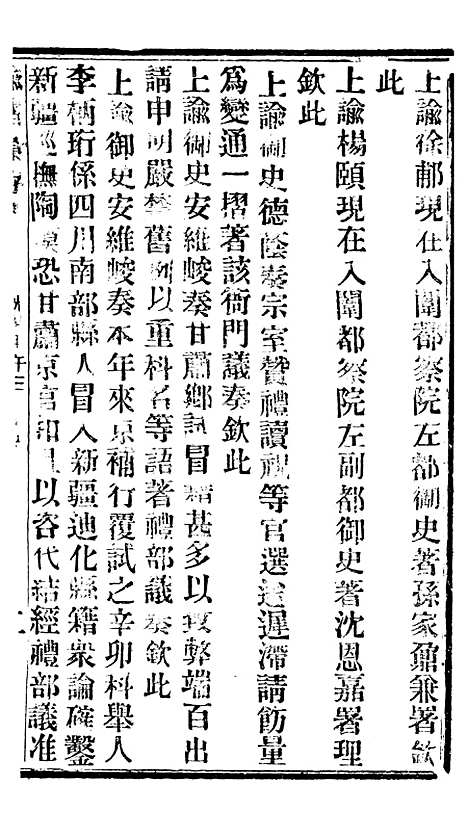 上諭徐郙現在入闈都察院左都御史著孫家鼐兼署欽
此
上諭楊頤現在入闈都察院左副都御史著沈恩嘉署理
欽此
上諭御史德蔭奏宗室贊禮讀祝等官選途遲滯請飭量
為變通一摺著該衙門議奏欽此
上諭御史安維峻奏甘肅鄉試冒籍甚多以致弊端百出
請申明嚴禁舊例以重科名等語著禮部議奏欽此
上諭御史安維峻奏本年來京補行覆試之辛卯科舉人
李柄珩係四川南部縣人冒入新疆迪化縣籍眾論確鑿
新疆巡撫陶 恐甘肅京官 以咨代結經禮部議准